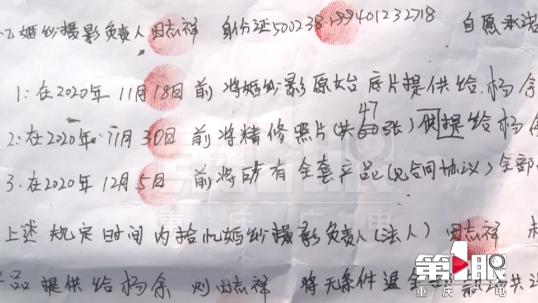 忆婚纱摄影负责人田志祥 身份证500238199401232718 自愿承诺
1:在2020年11月18日前将婚纱影原始底片提供给杨余
2:在2020年11月30日前将精修照片(共47张)提给杨余
3.在2020年12月5日前将所有全套产品(见合同协议)全部
上述规定时间内拾忆婚纱摄影负责人(法人)田志祥 未
品提供给杨余 则田志祥 将无条件退全款
第1眼
重庆广电
第1眼
重庆广电